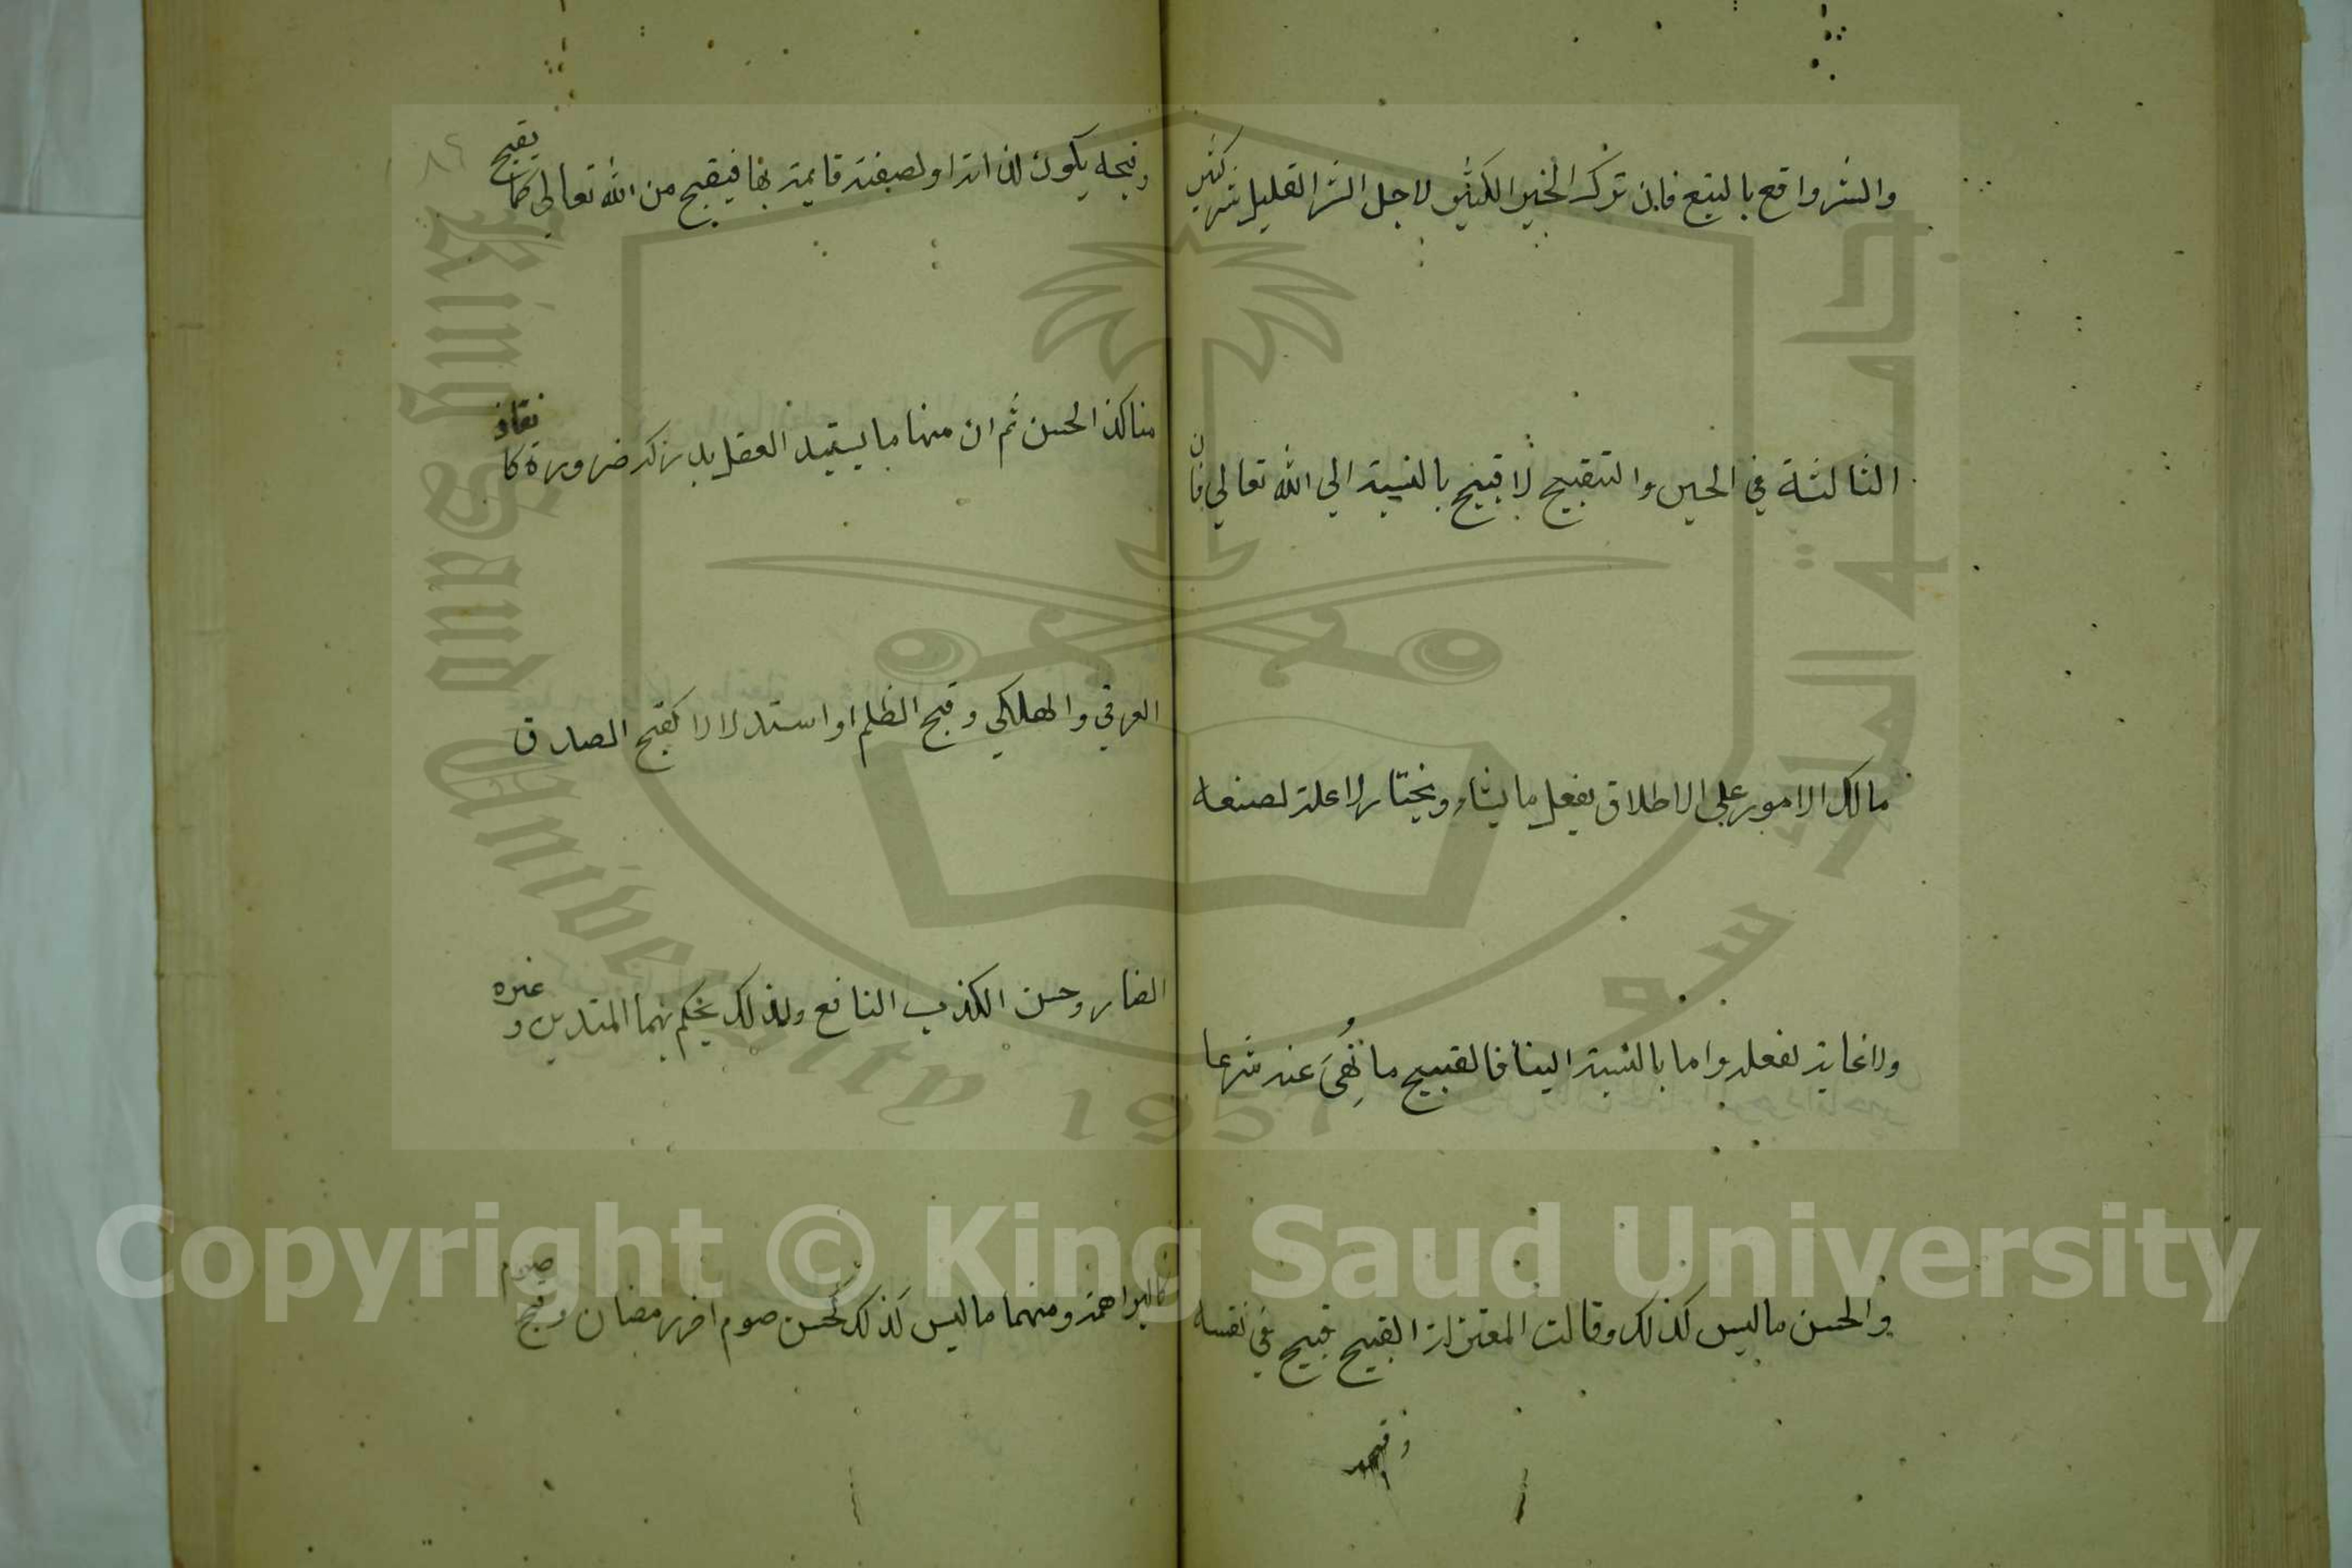 والشر واقع بالتبع فان ترك الخير الكثير لاجل الشر القليل شر كثير
الثالثة في الحسن والتقبيح لا قبيح بالنسبة الي الله تعالي فان
مالك الامور علي الاطلاق يفعل ما يشاء ويختار لا علة لصنعه
ولا غاية لفعله واما بالنسبة الينا فالقبيح ما نُهِيَ عنه شرعا
والحسن ما ليس كذلك وقالت المعتزلة القبيح قبيح في نفسه
وقبحه
وقبحه يكون لذاته او لصفته قايمة بها فيقبح من الله تعالي كما يقبح
منا كذا الحسن ثم ان منها ما يستبد العقل بدركه ضرورة كانقاذ
الغرقي والهلكي وقبح الظلم او استدلالا كقبح الصدق
الضار وحسن الكذب النافع ولذلك يحكم بهما المتدين وغيره
كالبراهمة ومنهما ما ليس كذلك كحسن صوم اخر رمضان وقبح صوم
Copyright © King Saud University
King Saud University 1957
جامعة الملك سعود